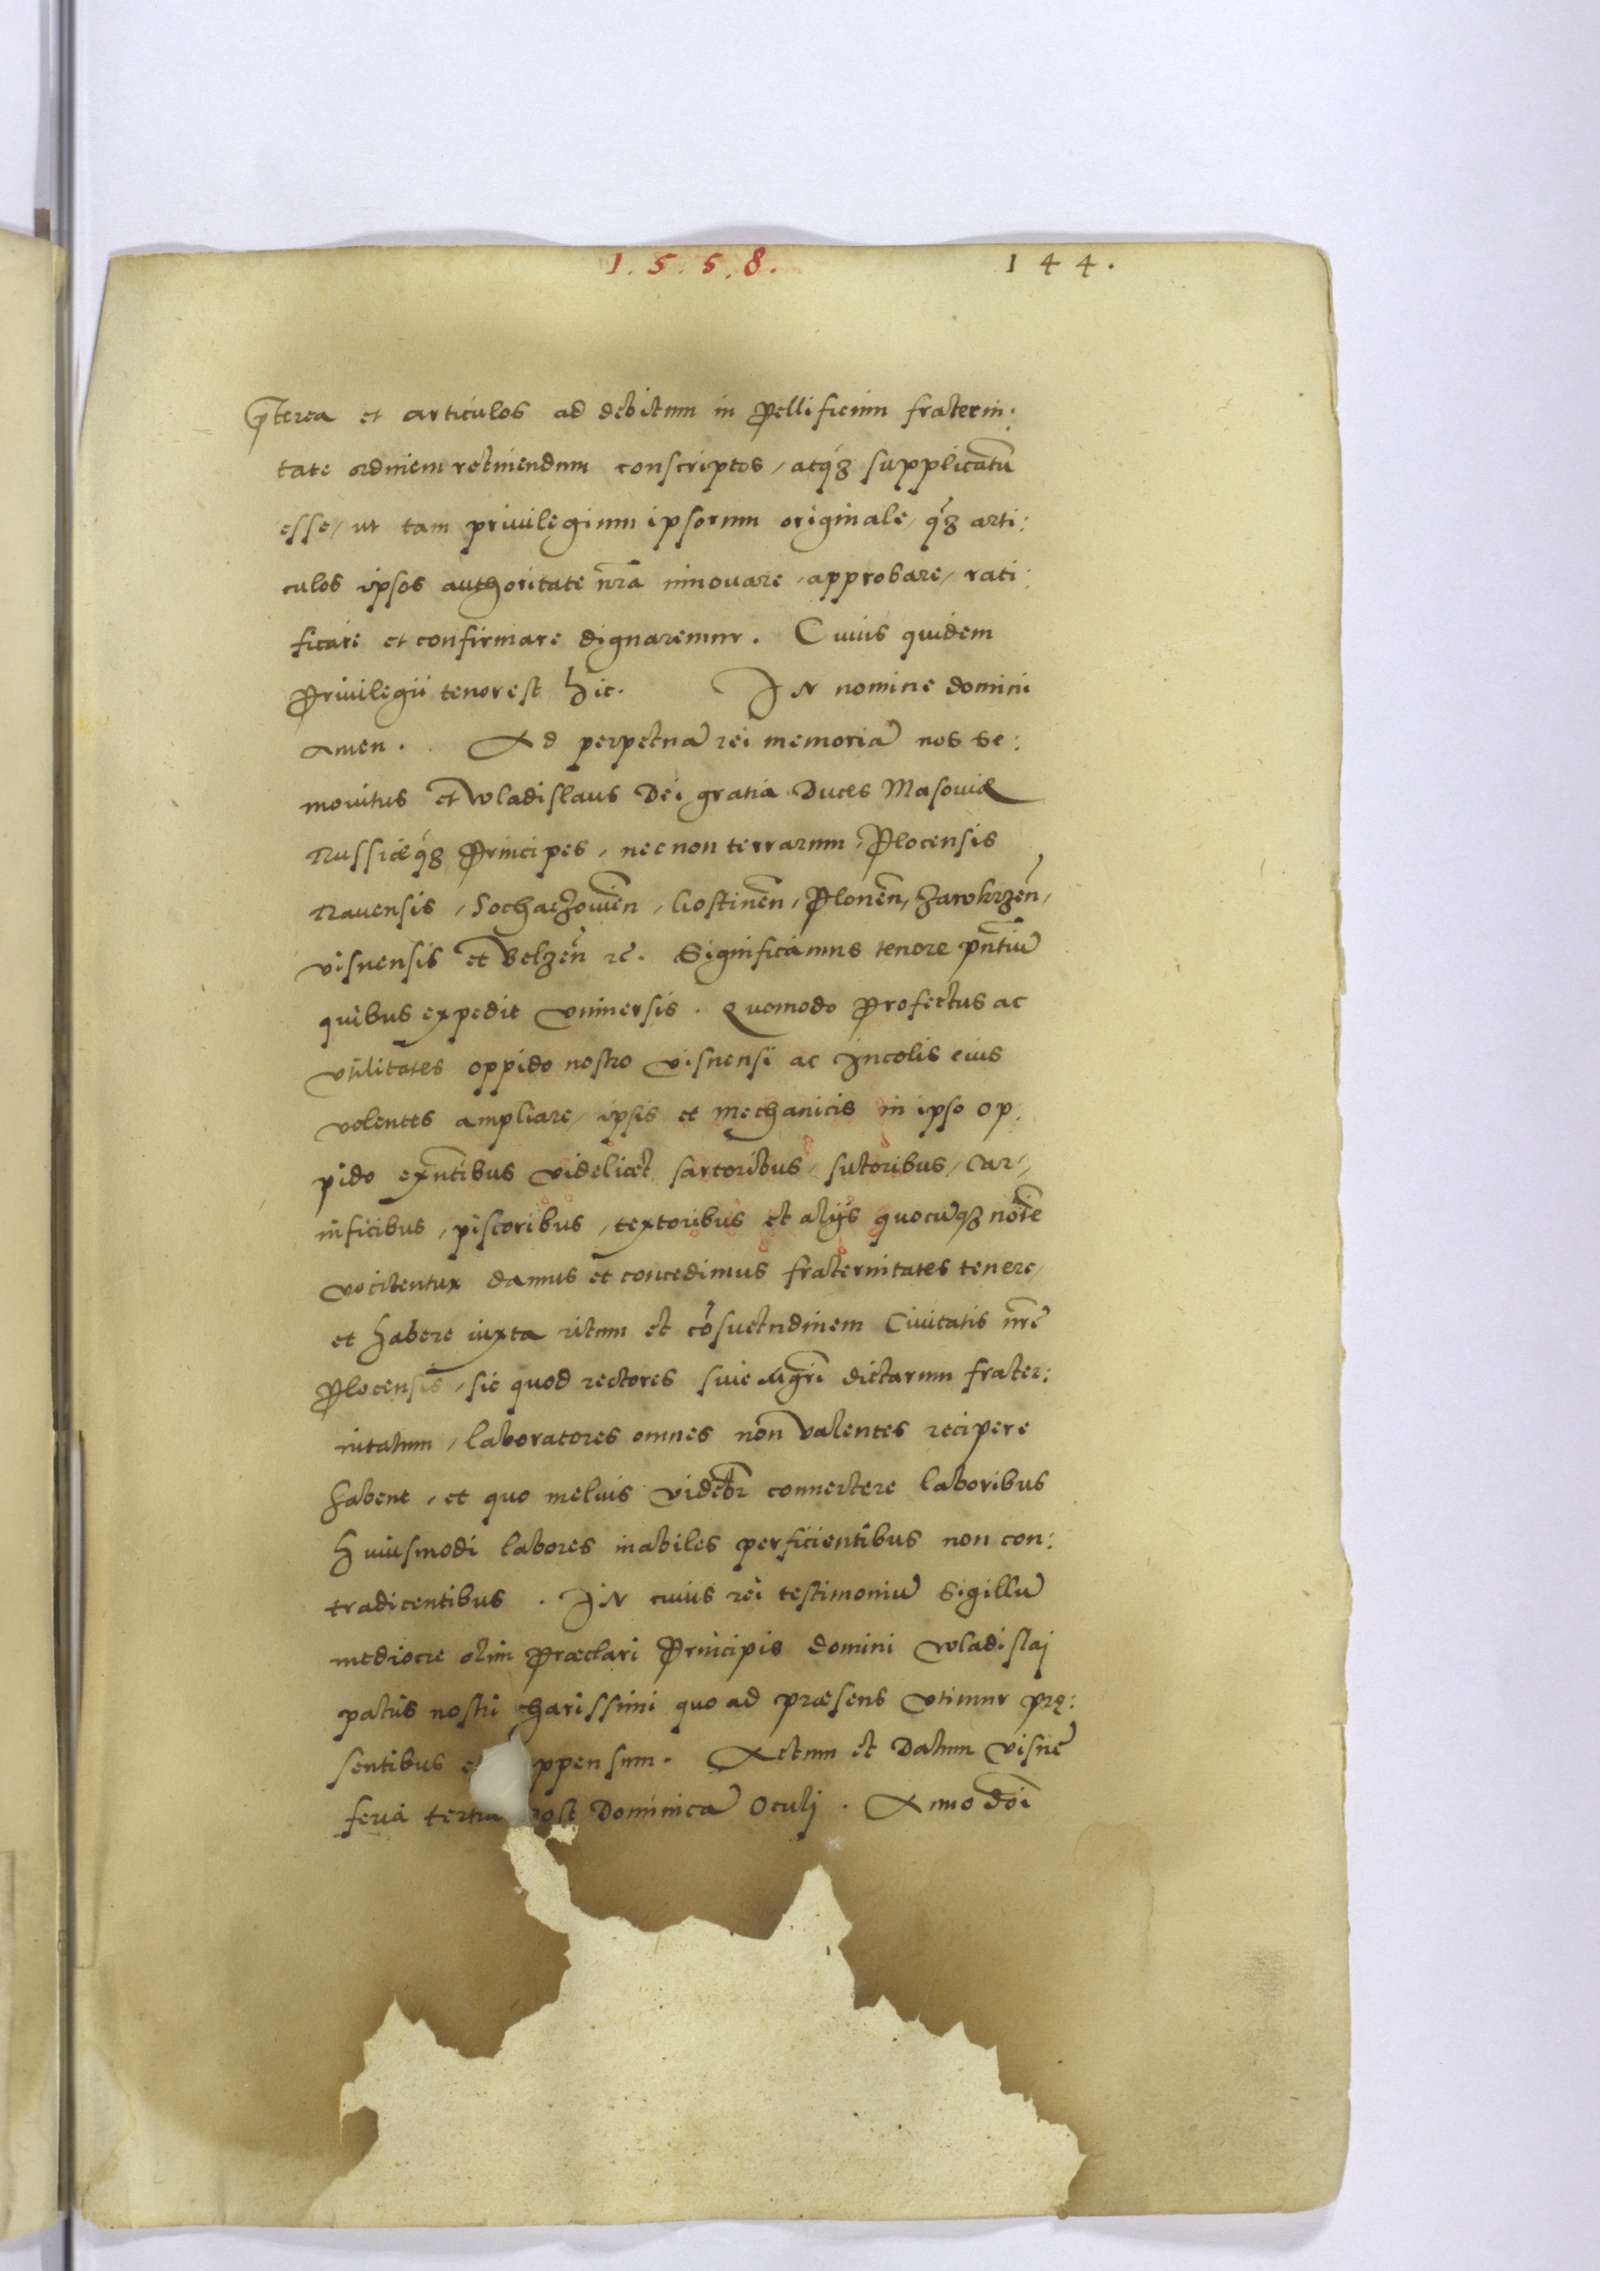 1.5.5.8.
144.
p̄terea et articulos ad debitum in Pellificum fraterni:
tate ordinem retinendum conscriptos, atq́ꝫ supplicatū
esse, ut tam privilegium ipsorum originale, q́ꝫ arti:
culos ipsos authoritate nr̄a innovare, approbare, rati:
ficare et confirmare dignaremur. Cuius quidem
Privilegii tenor est hic. In nomine domini
amen. Ad perpetuā rei memoriā nos Se:
movitus et Wladislaus Dei gratia Duces Masoviæ
Russiæq́ꝫ Principes, nec non terrarum, Plocensis
Ravensis, Sochaczovien̄, Gostinen̄, Plonen̄, Zawkrzen̄,
Visnensis et Belzen̄ rē. Significamus tenore pn̄tiū
quibus expedit Universis. Quomodo Profectus ac
Vtilitates oppido nostro Visnensi ac Incolis eius
volentes ampliare, ipsis et Mechanicis in ipso op:
pido exn̄tibus videlicet sartoribus, sutoribus, Car:
nificibus, pistoribus, textoribus et alijs quocūqꝫ noīe
vocitentur damus et concedimus fraternitates tenere,
et habere iuxta ritum et cōsuetudinem Civitatis nr̄e
Plocensis, sic quod rectores sive Mgr̄i dictarum frater:
nitatum, laboratores omnes non valentes recipere
habent, et quo melius videbr̄ convertere laboribus
huiusmodi labores inabiles perficientibus non con:
tradicentibus. In cuius rei testimoniū Sigillū
mediocre olim Præclari Principis domini Wladislaj
patris nostri charissimi quo ad præsens Vtimur prę:
sentibus e ppensum. Actum et Datum Visne
feria tertia post Dominicā Oculj. Anno doī